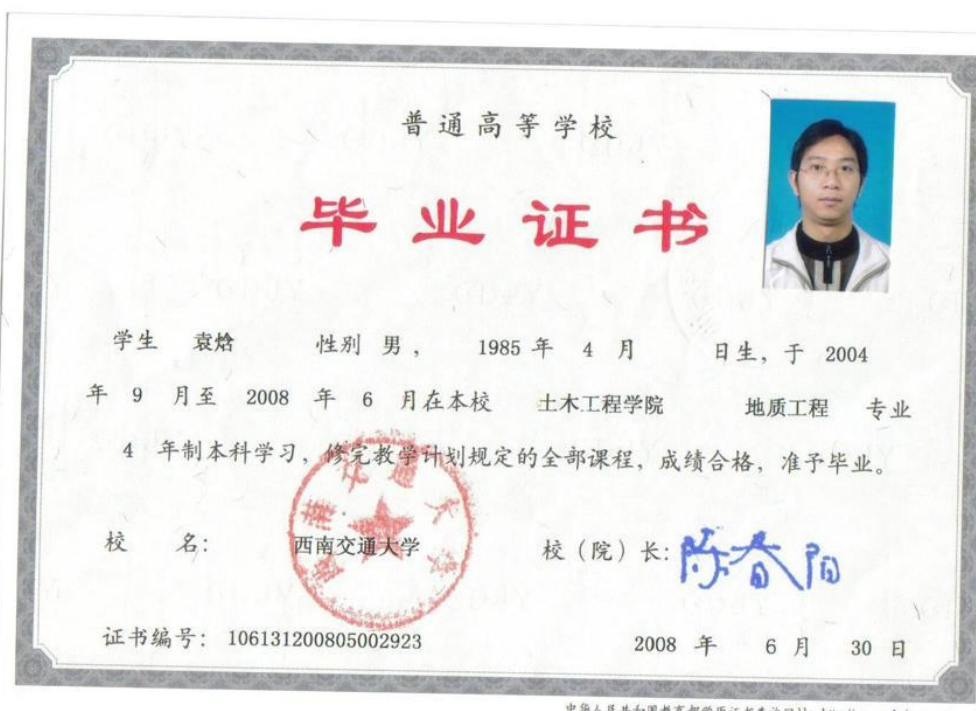 普通高等学校
毕业证书
学生 袁焓 性别 男， 1985 年 4 月 日生，于 2004
年 9 月至 2008 年 6 月在本校 土木工程学院 地质工程 专业
4 年制本科学习，修完教学计划规定的全部课程，成绩合格，准予毕业。
校 名： 西南交通大学 校（院）长：陈春阳
证书编号： 106131200805002923 2008 年 6 月 30 日